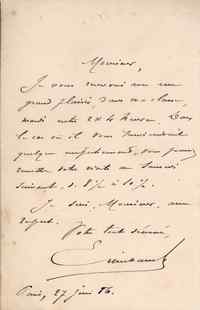 Monsieur,
Je vous recevrai avec un
grand plaisir, dans ma classe,
mardi entre 2 et 4 heures. Dans
le cas où il vous surviendrait
quelque empêchement, vous pouvez
remettre votre visite au Samedi
suivant, de 8½ à 10½.
Je suis, Monsieur, avec
respect,
Votre tout dévoué,
Paris, 27 juin 86.